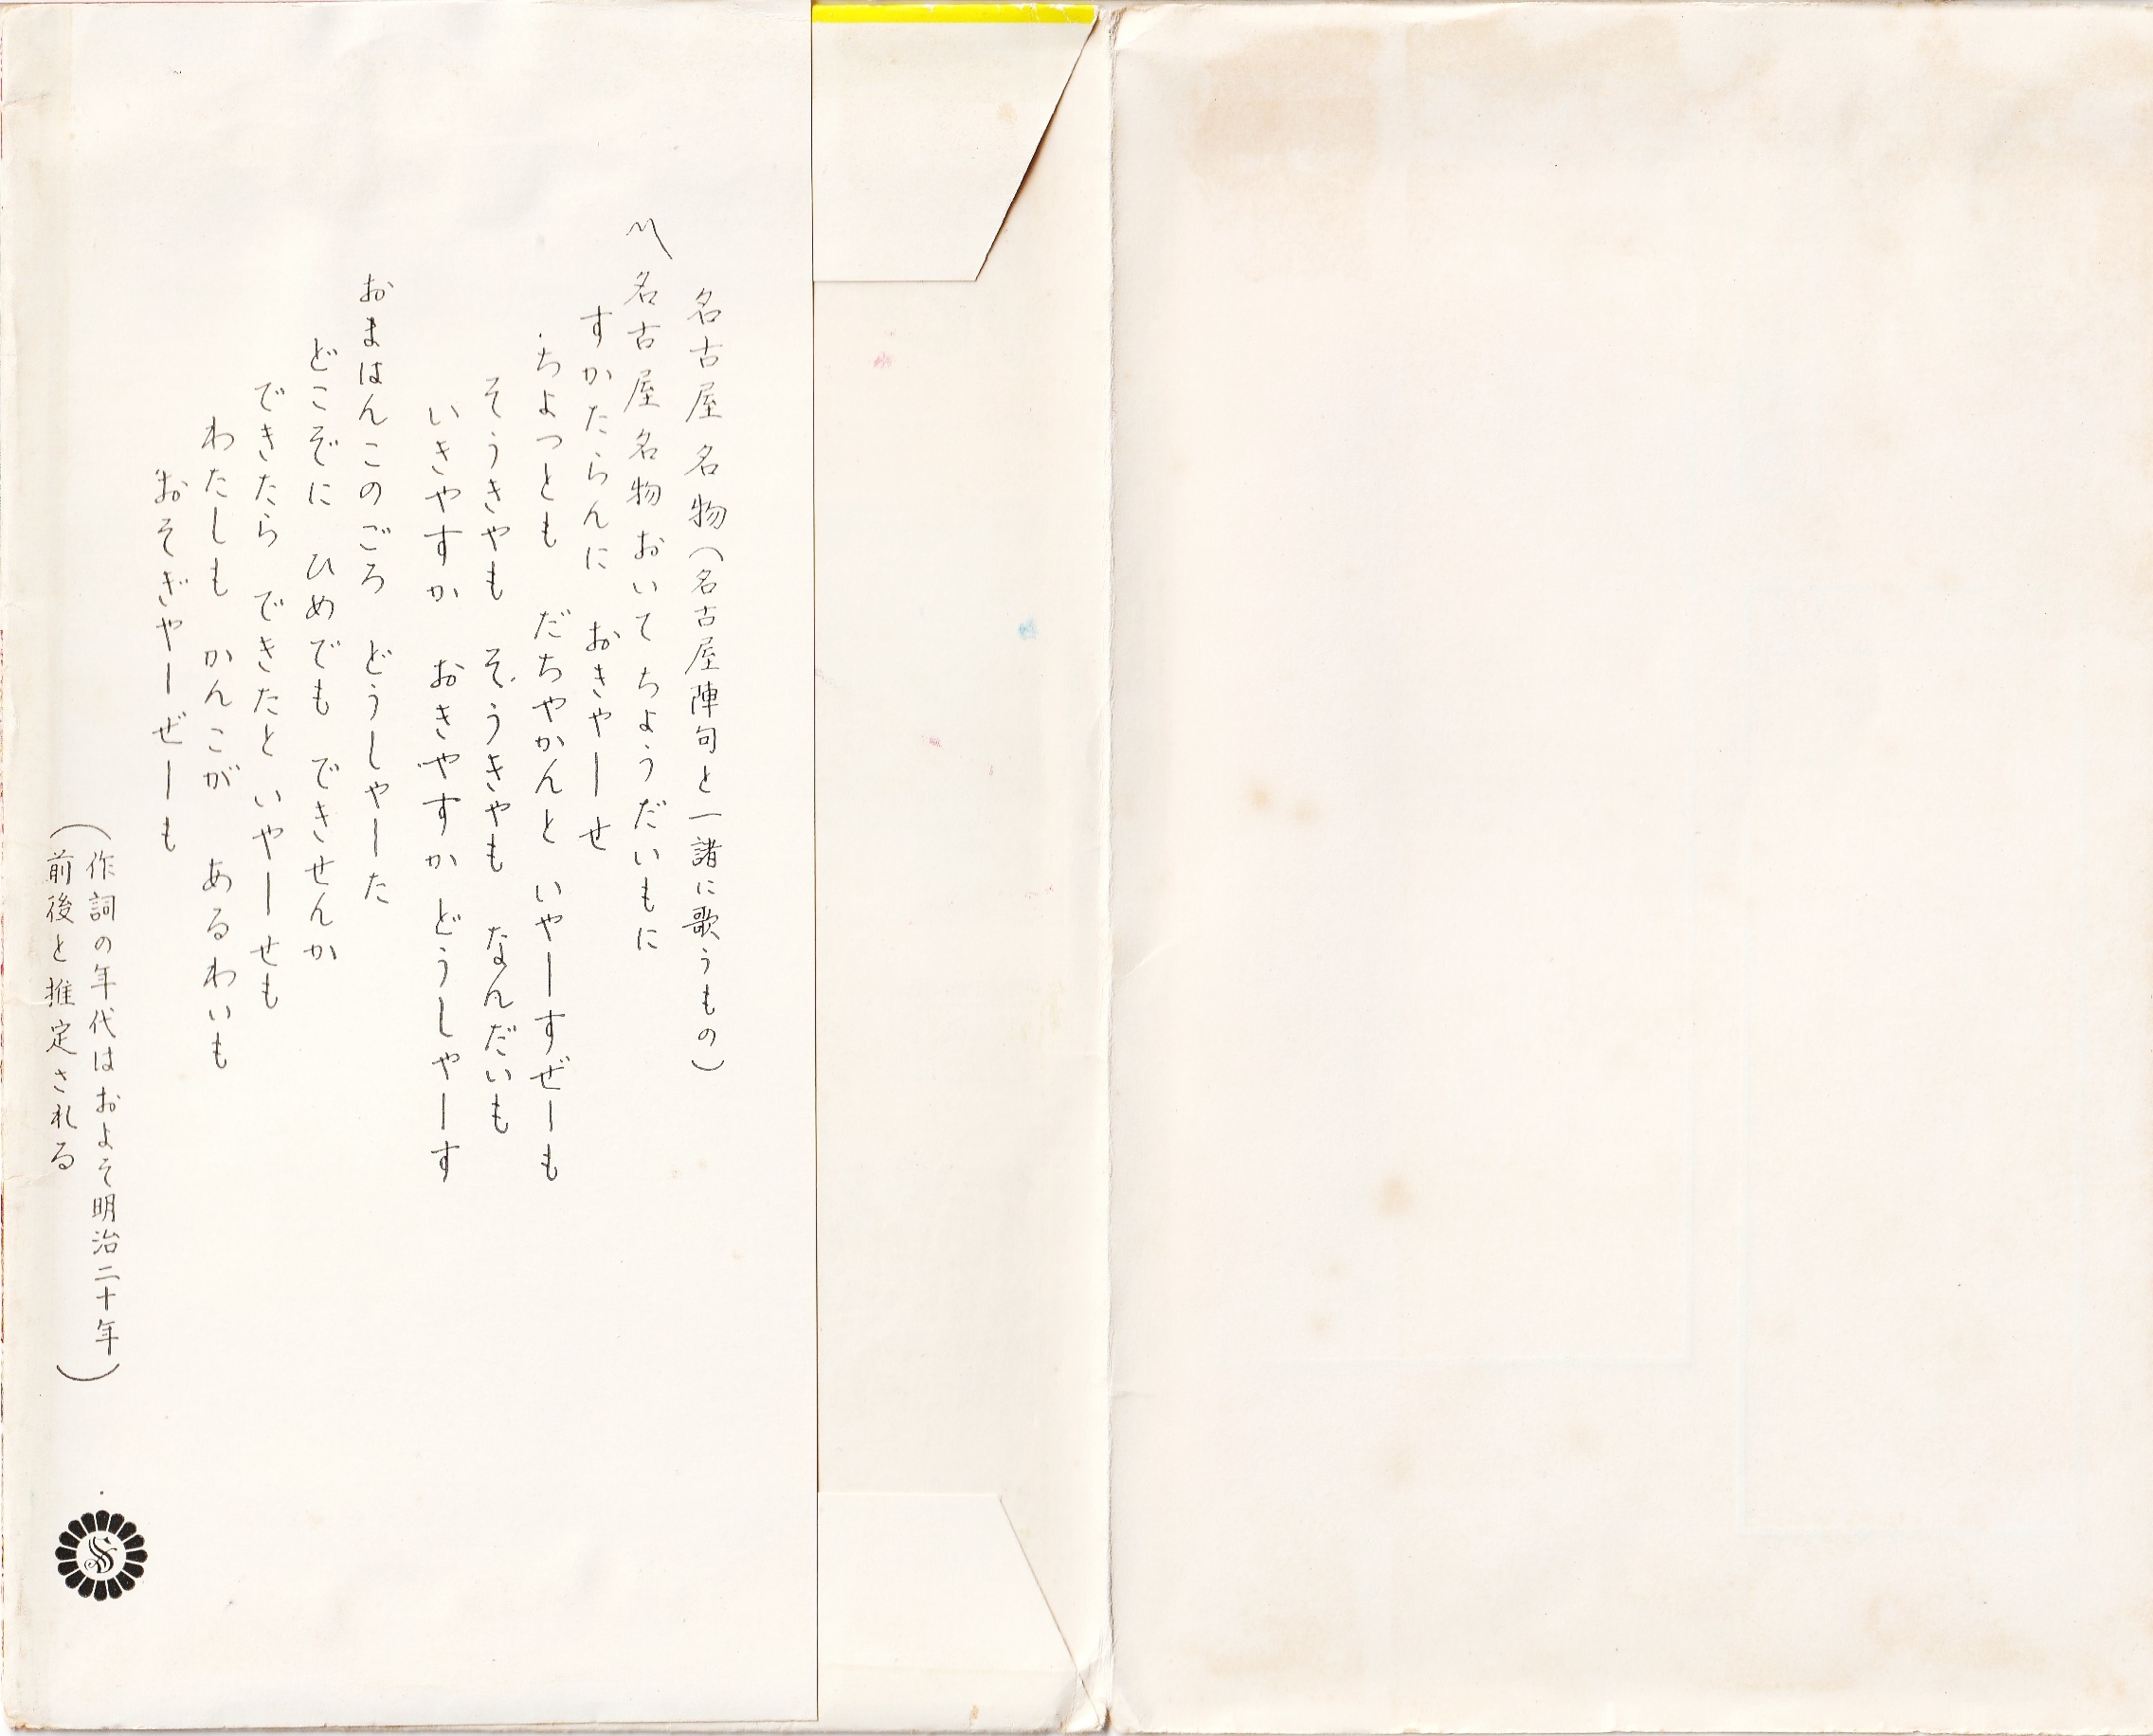 名古屋名物(名古屋陣句と一諸に歌うもの)
〽名古屋名物おいてちょうだいもに
すかたらんに おきゃーせ
ちょっとも だちゃかんと いゃーすぜーも
そうきゃも そうきゃも なんだいも
いきゃすか おきゃすか どうしゃーす
おまはんこのごろ どうしゃーた
どこぞに ひめでも できせんか
できたら できたと いゃーせも
わたしも かんこが あるわいも
おそぎゃーぜーも
(作詞の年代はおよそ明治二十年
前後と推定される)
S